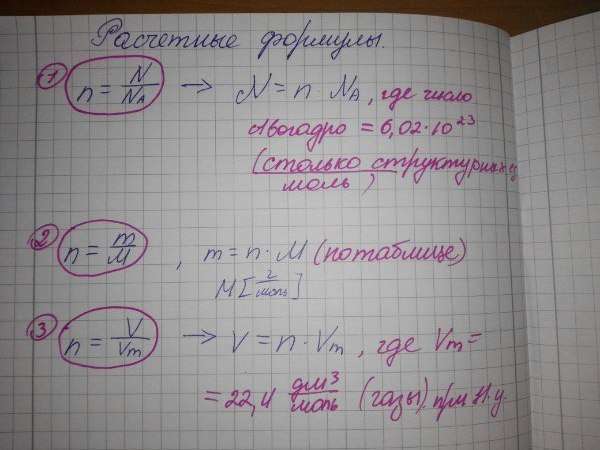 Расчетные формулы.
① n = N/NA → N = n · NA, где число
Авогадро = 6,02·10²³
(столько структурных
моль)
② n = m/M , m = n · M (по таблице)
M [г/моль]
③ n = V/Vm → V = n · Vm, где Vm =
= 22,4 дм³/моль (газы) при н.у.